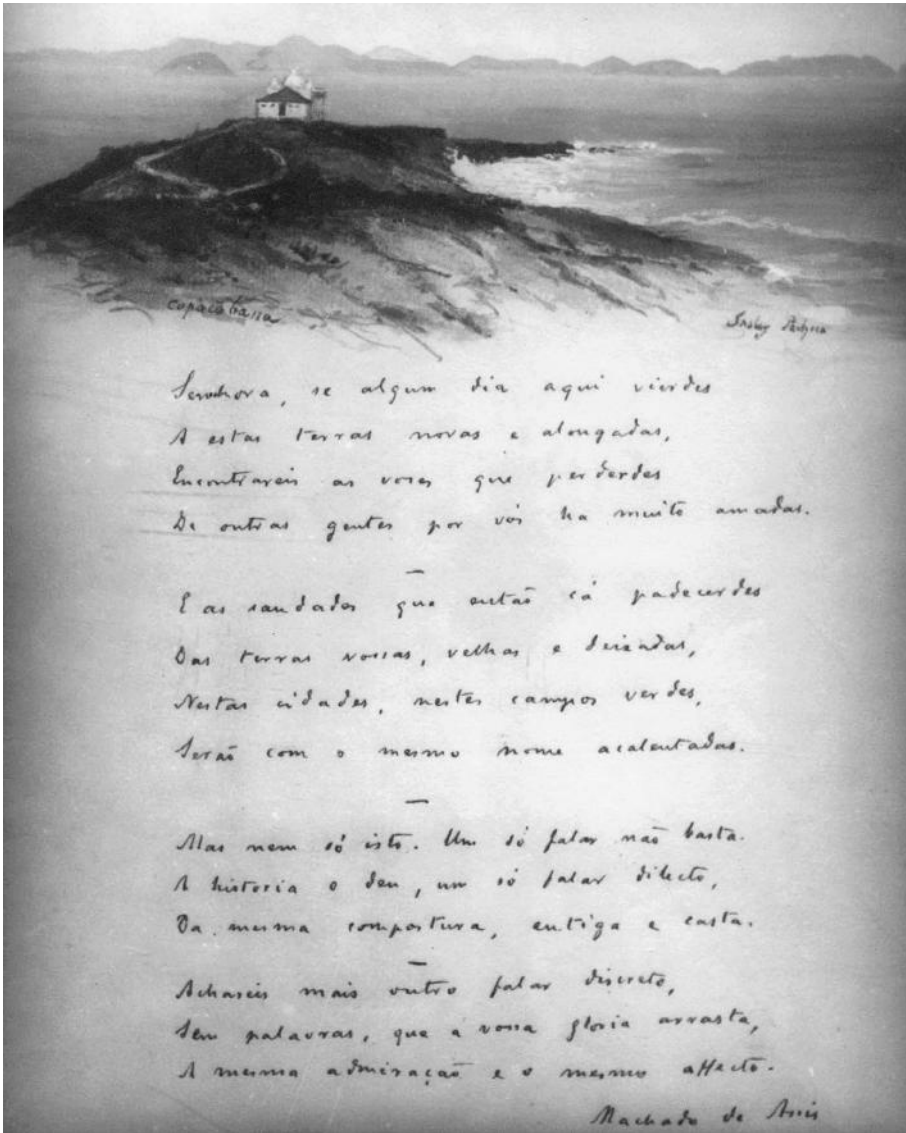 Copacabana
Insley Pacheco
Senhora, se algum dia aqui vierdes
A estas terras novas e alongadas,
Encontrareis as vozes que perderdes
De outras gentes por vós ha muito amadas.
E as saudades que então cá padecerdes
Das terras vossas, velhas e deixadas,
Nestas cidades, nestes campos verdes,
Serão com o mesmo nome acalentadas.
Mas nem só isto. Um só falar não basta.
A historia o deu, um só falar dilecto,
Da mesma compostura, antiga e casta.
Achareis mais outro falar discreto,
Sem palavras, que a vossa gloria arrasta,
A mesma admiração e o mesmo affecto.
Machado de Assis